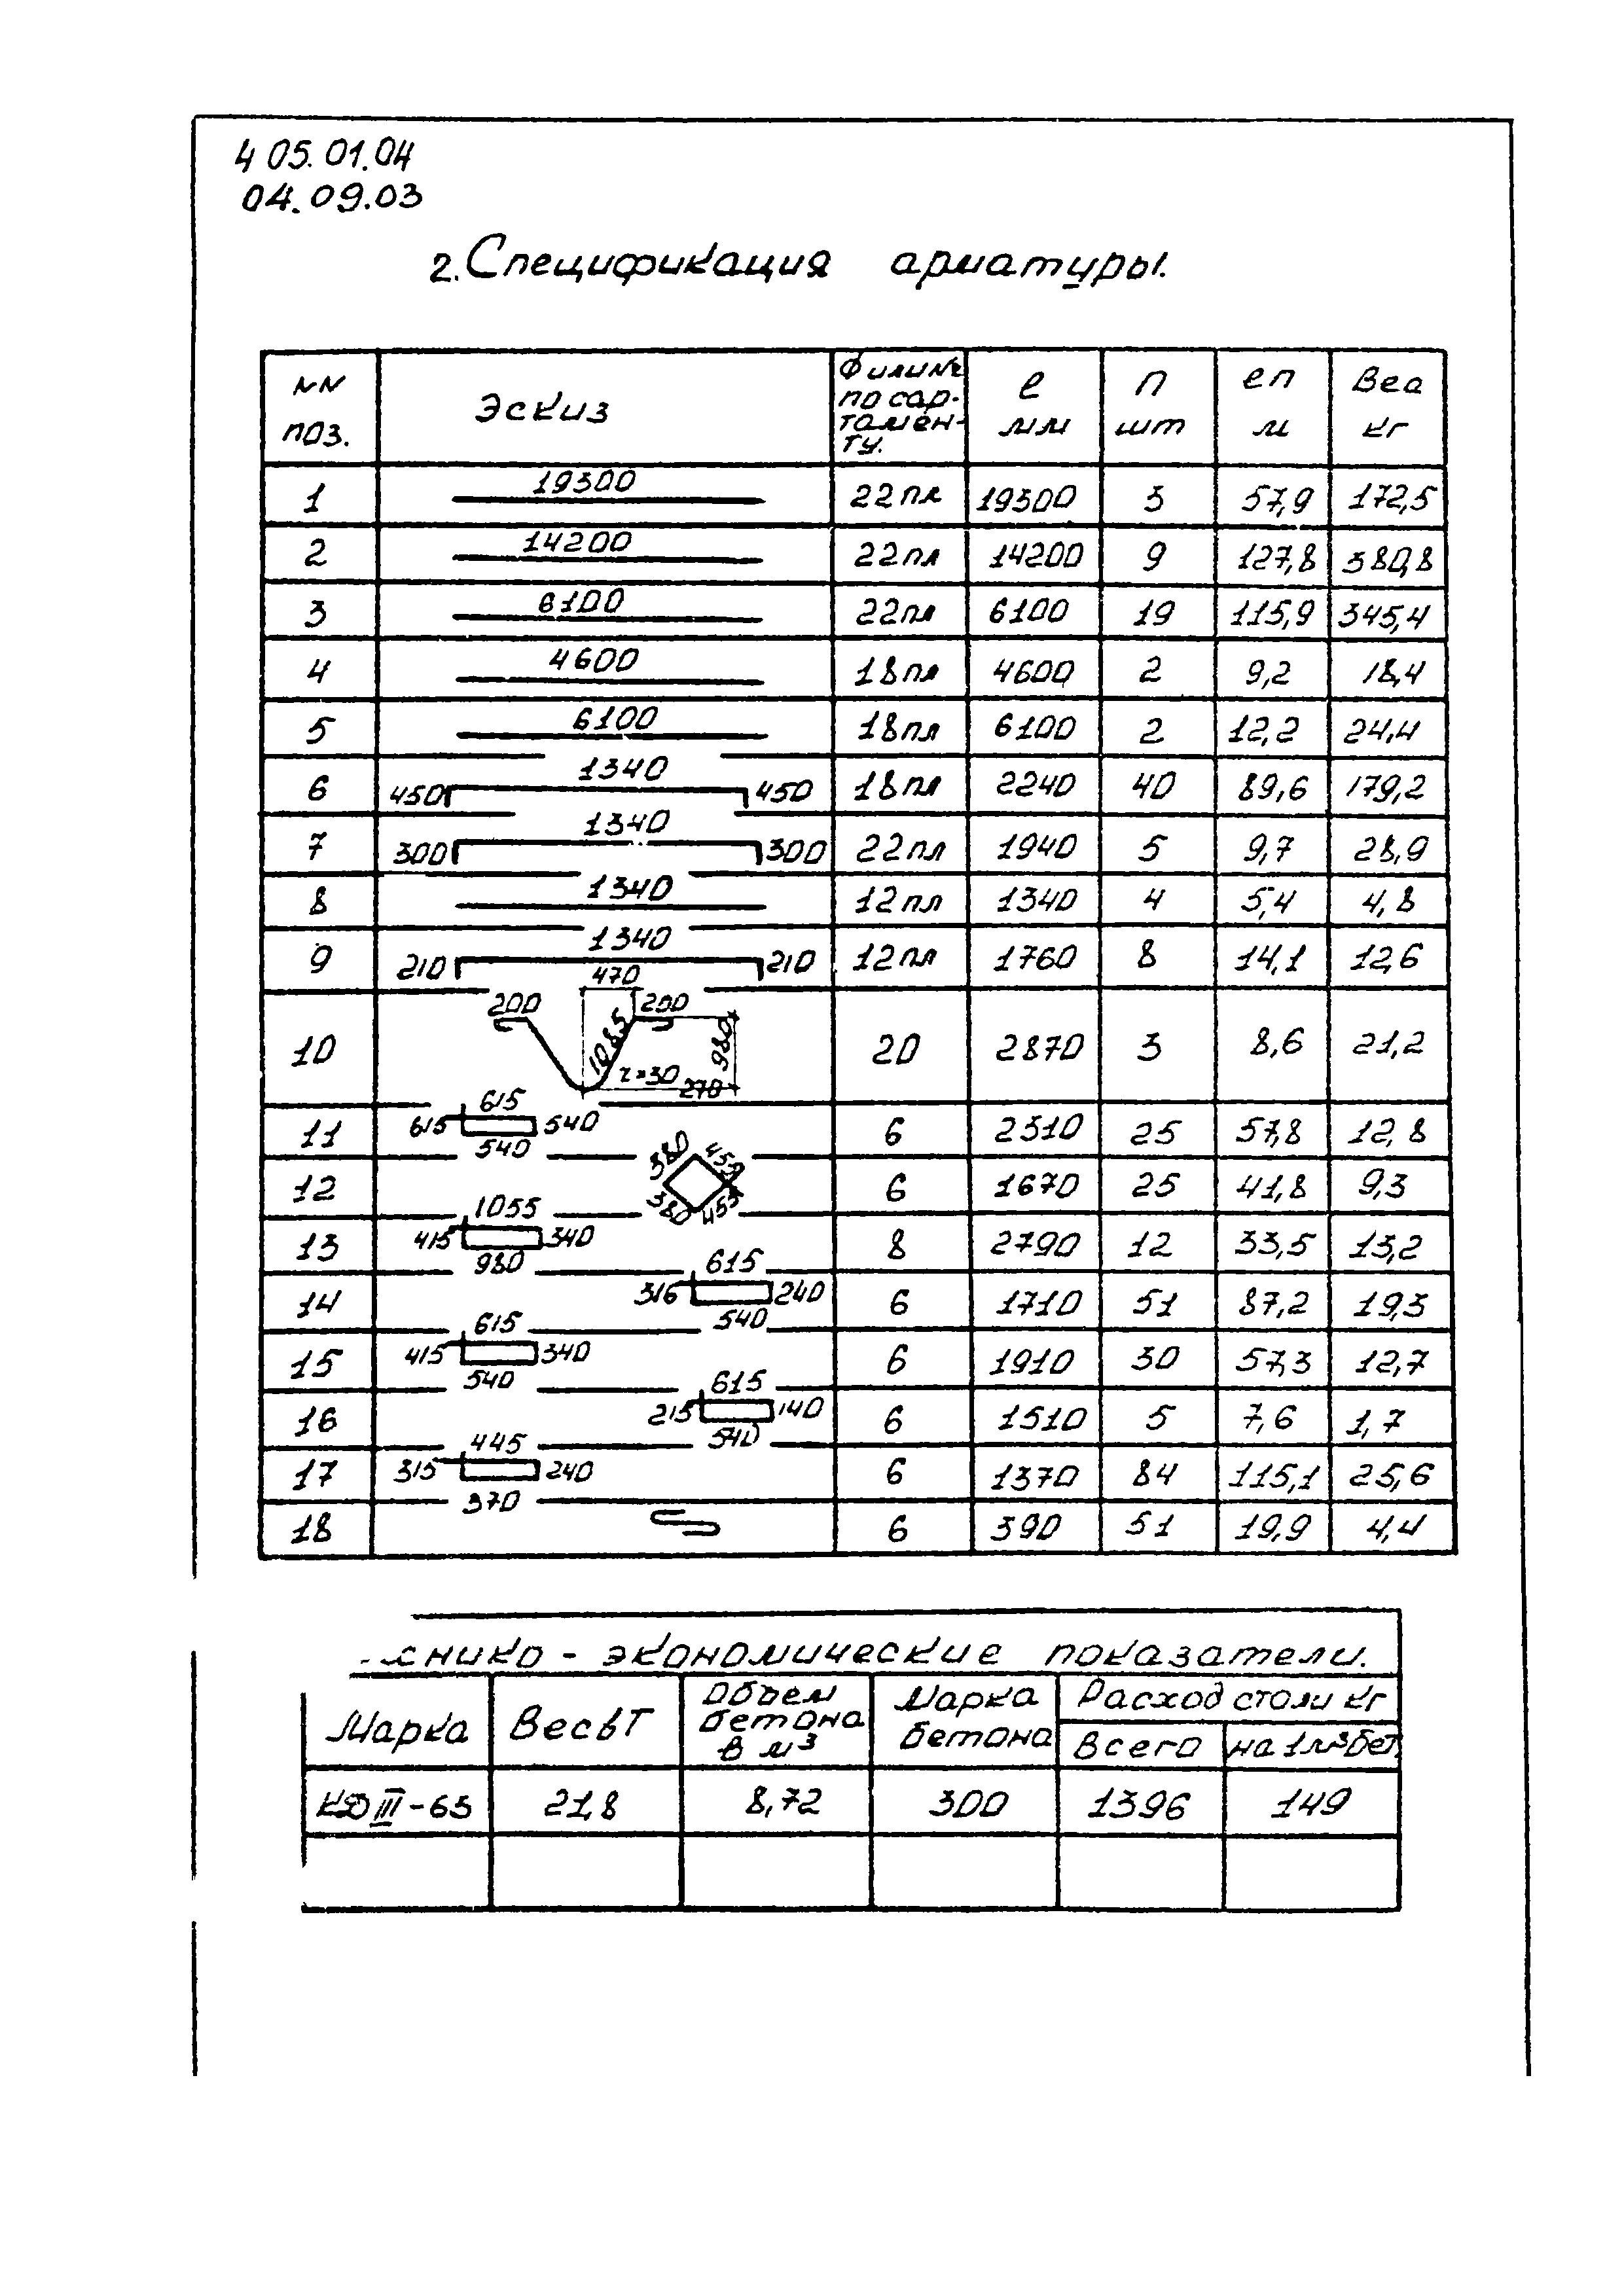 4 05.01.04
04.09.03
2. Спецификация арматуры.
NN поз. Эскиз Ф или № по сар-тамен-ту. ℓ мм n шт ℓn м Вес кг
1 19300 22пл 19300 3 57,9 172,5
2 14200 22пл 14200 9 127,8 380,8
3 6100 22пл 6100 19 115,9 345,4
4 4600 18пл 4600 2 9,2 18,4
5 6100 18пл 6100 2 12,2 24,4
6 450 1340 450 18пл 2240 40 89,6 179,2
7 300 1340 300 22пл 1940 5 9,7 28,9
8 1340 12пл 1340 4 5,4 4,8
9 210 1340 210 12пл 1760 8 14,1 12,6
10 200 470 200 1085 980 r=30 270 20 2870 3 8,6 21,2
11 615 615 540 540 6 2310 25 57,8 12,8
12 380 453 380 453 6 1670 25 41,8 9,3
13 415 1055 340 980 8 2790 12 33,5 13,2
14 316 615 240 540 6 1710 51 87,2 19,3
15 415 615 340 540 6 1910 30 57,3 12,7
16 215 615 140 540 6 1510 5 7,6 1,7
17 315 445 240 370 6 1370 84 115,1 25,6
18 6 390 51 19,9 4,4
хнико - экономические показатели.
Марка Вес в Т Объем бетона в м³ Марка бетона Расход стали кг
Всего на 1м³ бет.
КДIII-63 21,8 8,72 300 1396 149